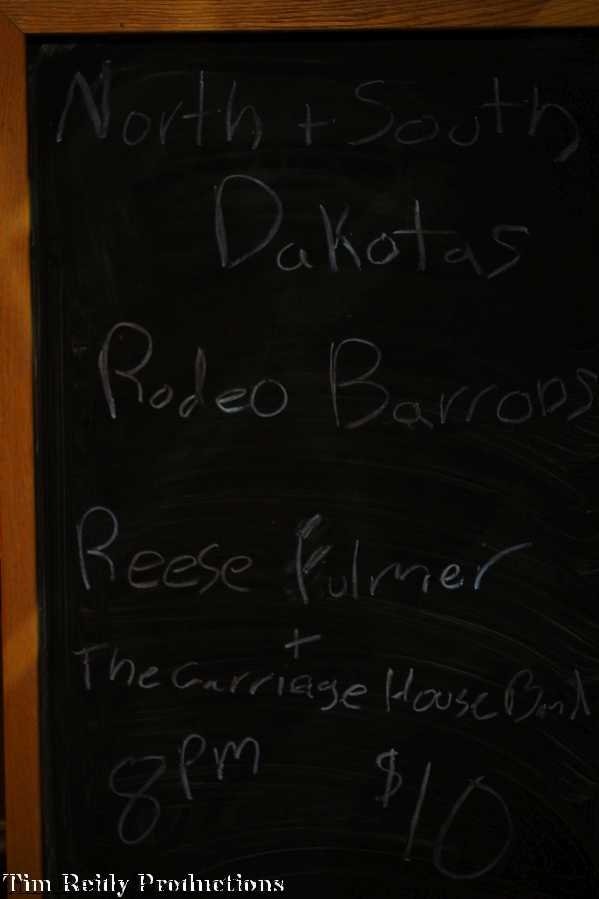 North + South
Dakotas
Rodeo Barrons
Reese Fulmer
+
The Carriage House Band
8pm $10
Tim Reidy Productions